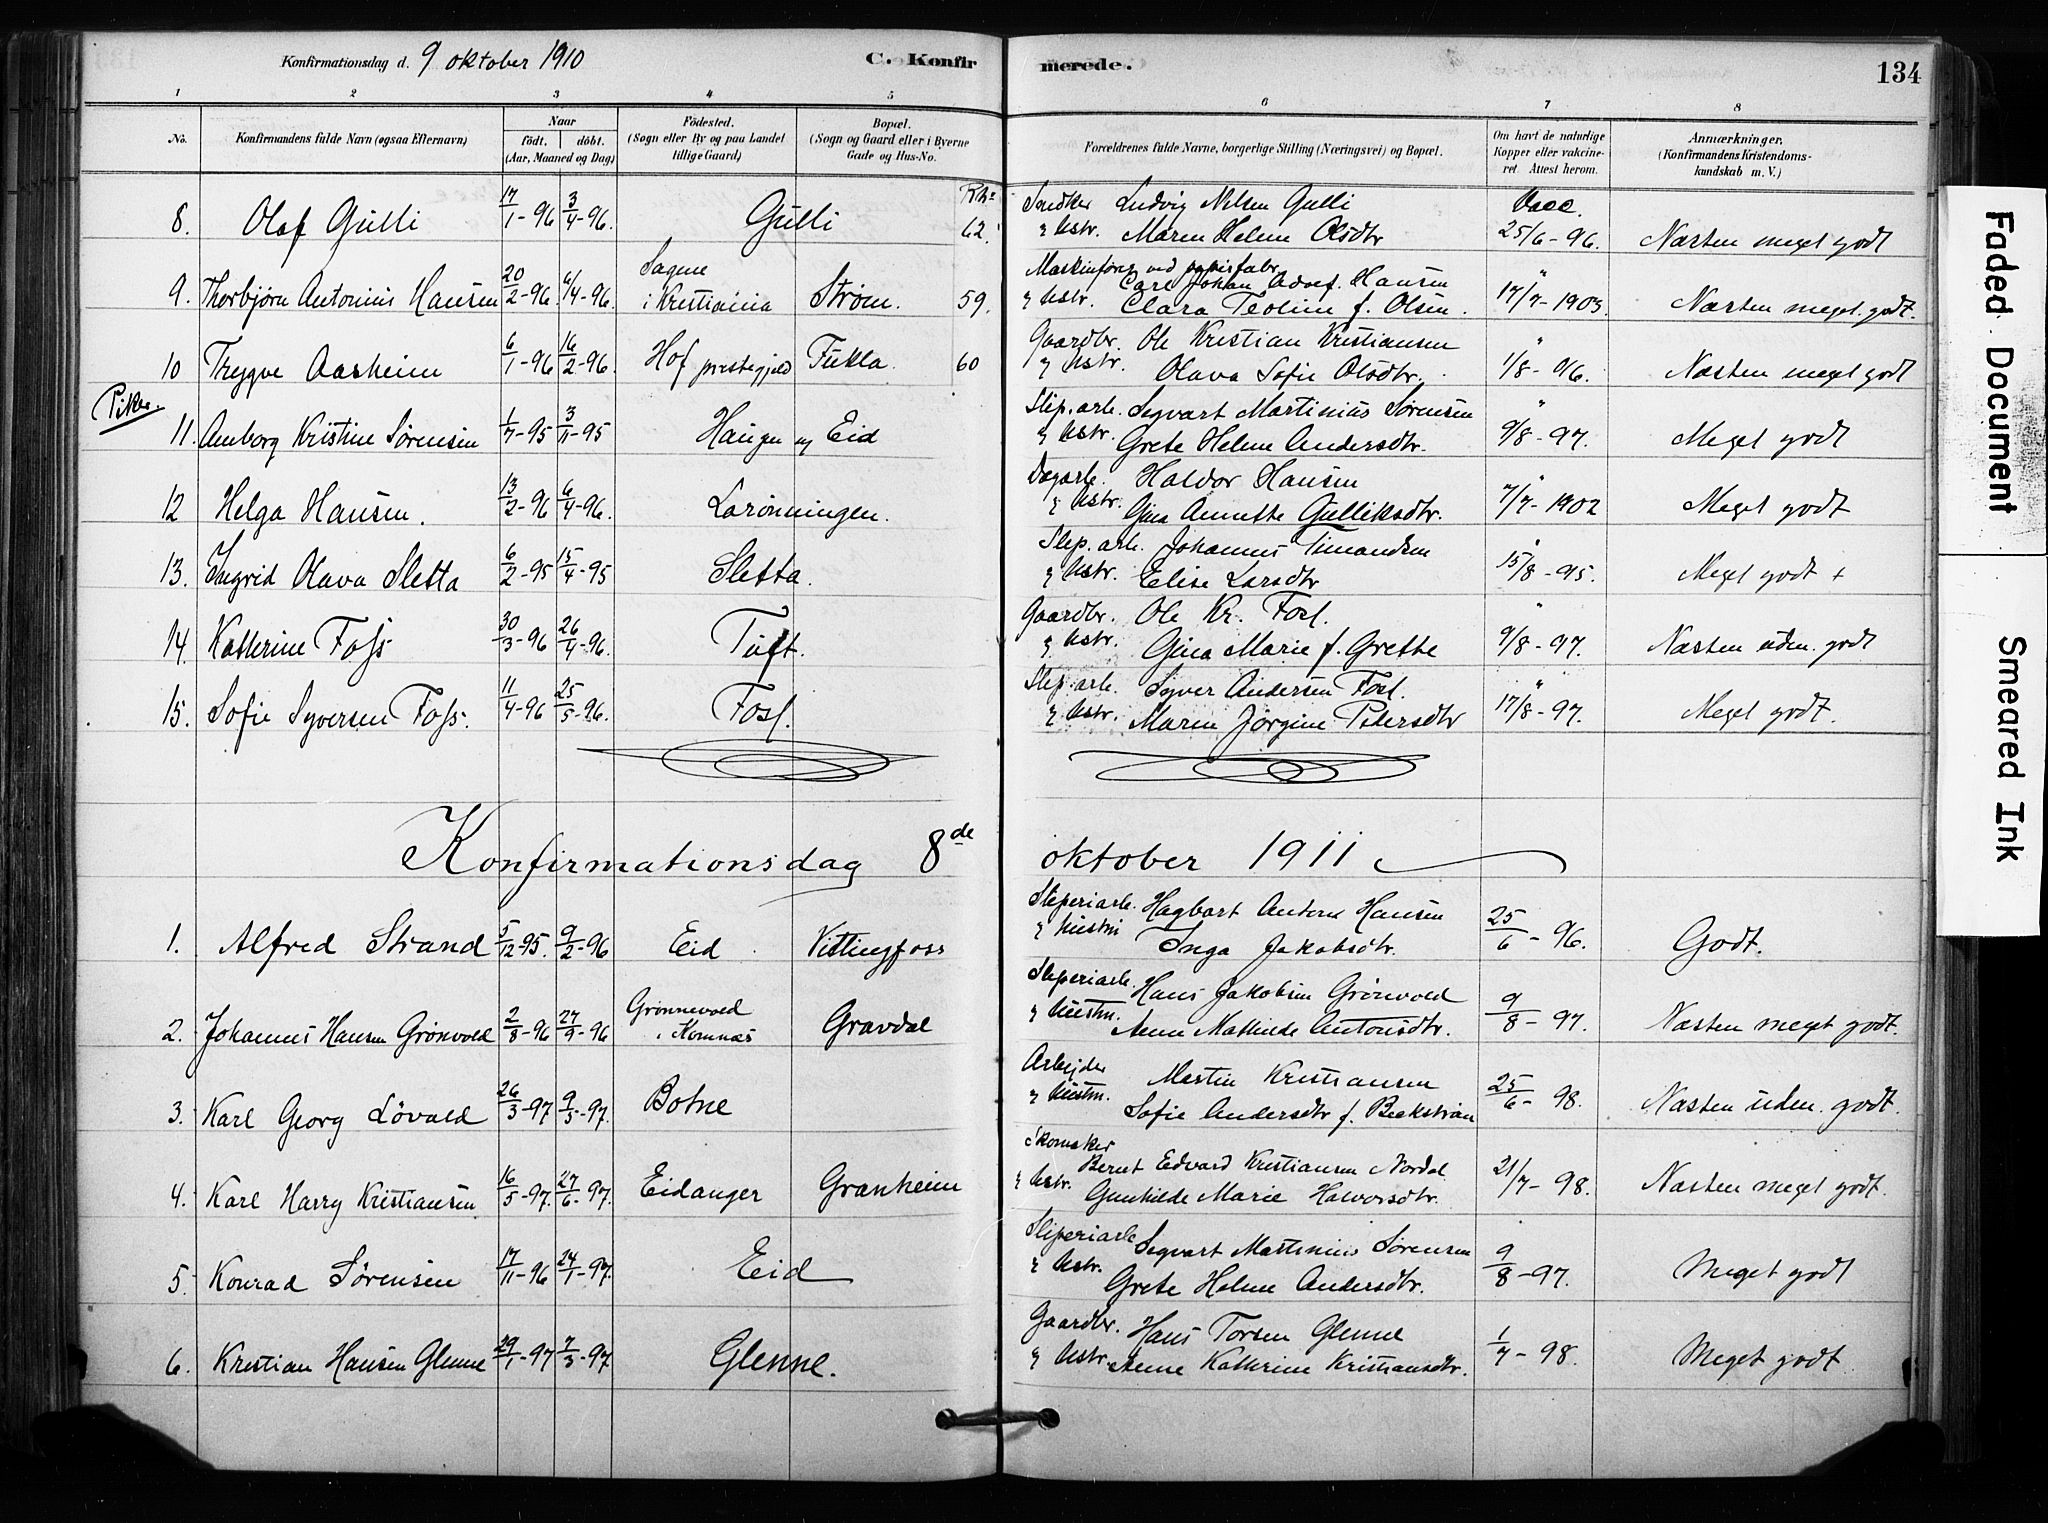 Konfirmationsdag d. 9 oktober 1910
C. Konfirmerede.
134
1 2 3 4 5 6 7 8
No.
Konfirmandens fulde Navn (ogsaa Efternavn)
Naar
födt. döbt.
(Aar, Maaned og Dag)
Födested.
(Sogn eller By og paa Landet tillige Gaard)
Bopæl.
(Sogn og Gaard eller i Byerne Gade og Hus-No.
Forældrenes fulde Navne, borgerlige Stilling (Næringsvei) og Bopæl.
Om havt de naturlige Kopper eller vakcineret. Attest herom.
Anmærkninger,
(Konfirmandens Kristendomskundskab m. V.)
8. Olaf Gulli 17/1-96 3/4-96. Gulli 62. Snedker Ludvig Nilsen Gulli Vacc.
& Hstr. Maren Helene Olsdtr 25/6-96. Næsten meget godt
9. Thorbjørn Antonius Hansen 20/2-96. 6/4-96. Sagene i Kristiania Strøm. 59. Maskinfører ved papirfabr. Carl Johan Adolf Hansen
& Hstr. Clara Teoline f. Olsen. 17/7-1903. Næsten meget godt.
10 Trygve Aasheim 6/1-96 16/2-96. Hof prestegjeld Fukla. 60 Gaardbr. Ole Kristian Kristiansen
& Hstr. Olava Sofie Olsdtr. 1/8-96. Næsten meget godt
Piker.
11. Amborg Kristine Sørensen 1/7-95 3/11-95 Haugen og Eid Slip.arb. Segvart Martinius Sørensen
& Hstr. Grete Helene Andersdtr. 9/8-97. Meget godt
12 Helga Hansen. 13/2-96 6/4-96. Lorønningen. Dagarb. Haldor Hansen
& Hstr. Gina Annette Gulliksdtr. 7/7-1902 Meget godt
13. Ingrid Olava Sletta 6/2-95 15/4-95 Sletta. Slip.arb. Johannes Timandsen
& Hstr. Elise Larsdtr 15/8-95. Meget godt +
14. Kathrine Foss 30/3-96 26/4-96. Tuft. Gaardbr. Ole Kr. Foss.
& Hstr. Gina Marie f. Grette 9/8-97. Næsten uden. godt
15. Sofie Syversen Foss. 11/4-96 25/5-96. Foss. Slip.arb. Syver Andersen Foss.
& Hstr. Maren Jørgine Petersdtr 17/8-97. Meget godt.
Konfirmationsdag 8de oktober 1911
1. Alfred Strand 5/12-95. 9/2-96 Eid Vittingfoss Sliperiarb. Hagbart Anders Hansen
& Hustru Inga Jakobsdtr. 25/6-96. Godt.
2. Johannes Hansen Grönvold 2/8-96 27/9-96 Grönnevold i Komnæs Gravdal Sliperiarb. Hans Jakobsen Grönvold
& Hustru. Anne Mathilde Antonsdtr. 9/8-97. Næsten meget godt.
3. Karl Georg Lövald 26/3-97 9/5-97. Botne Arbejder Martin Kristiansen
& Hustru. Sofie Andersdtr f. Bækstrian 25/6-98. Næsten uden. godt.
4. Karl Harry Kristiansen 16/5-97. 27/6-97. Eidanger Granheim Skomaker Bernt Edvard Kristiansen Nordal
& Hstr. Gunhilde Marie Halvorsdtr. 21/7-98. Næsten meget godt.
5. Konrad Sørensen 17/11-96 24/1-97. Eid Sliperiarb. Segvart Martinius Sørensen
& Hstr. Grete Helene Andersdtr. 9/8-97. Meget godt
6. Kristian Hansen Glenne 29/1-97 7/3-97. Glenne. Gaardbr. Hans Torsen Glenne
& Hstr. Anne Kathrine Kristiansdtr. 1/7-98. Meget godt
Faded Document
Smeared Ink